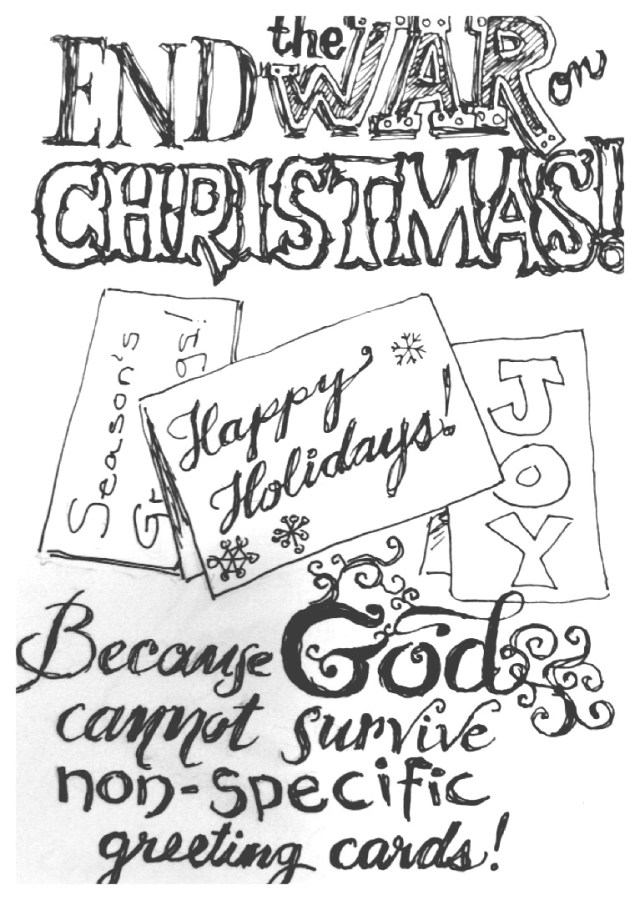 END the WAR on
CHRISTMAS!
Season's
Gr gs!
Happy
Holidays!
JOY
Because God
cannot survive
non-specific
greeting cards!